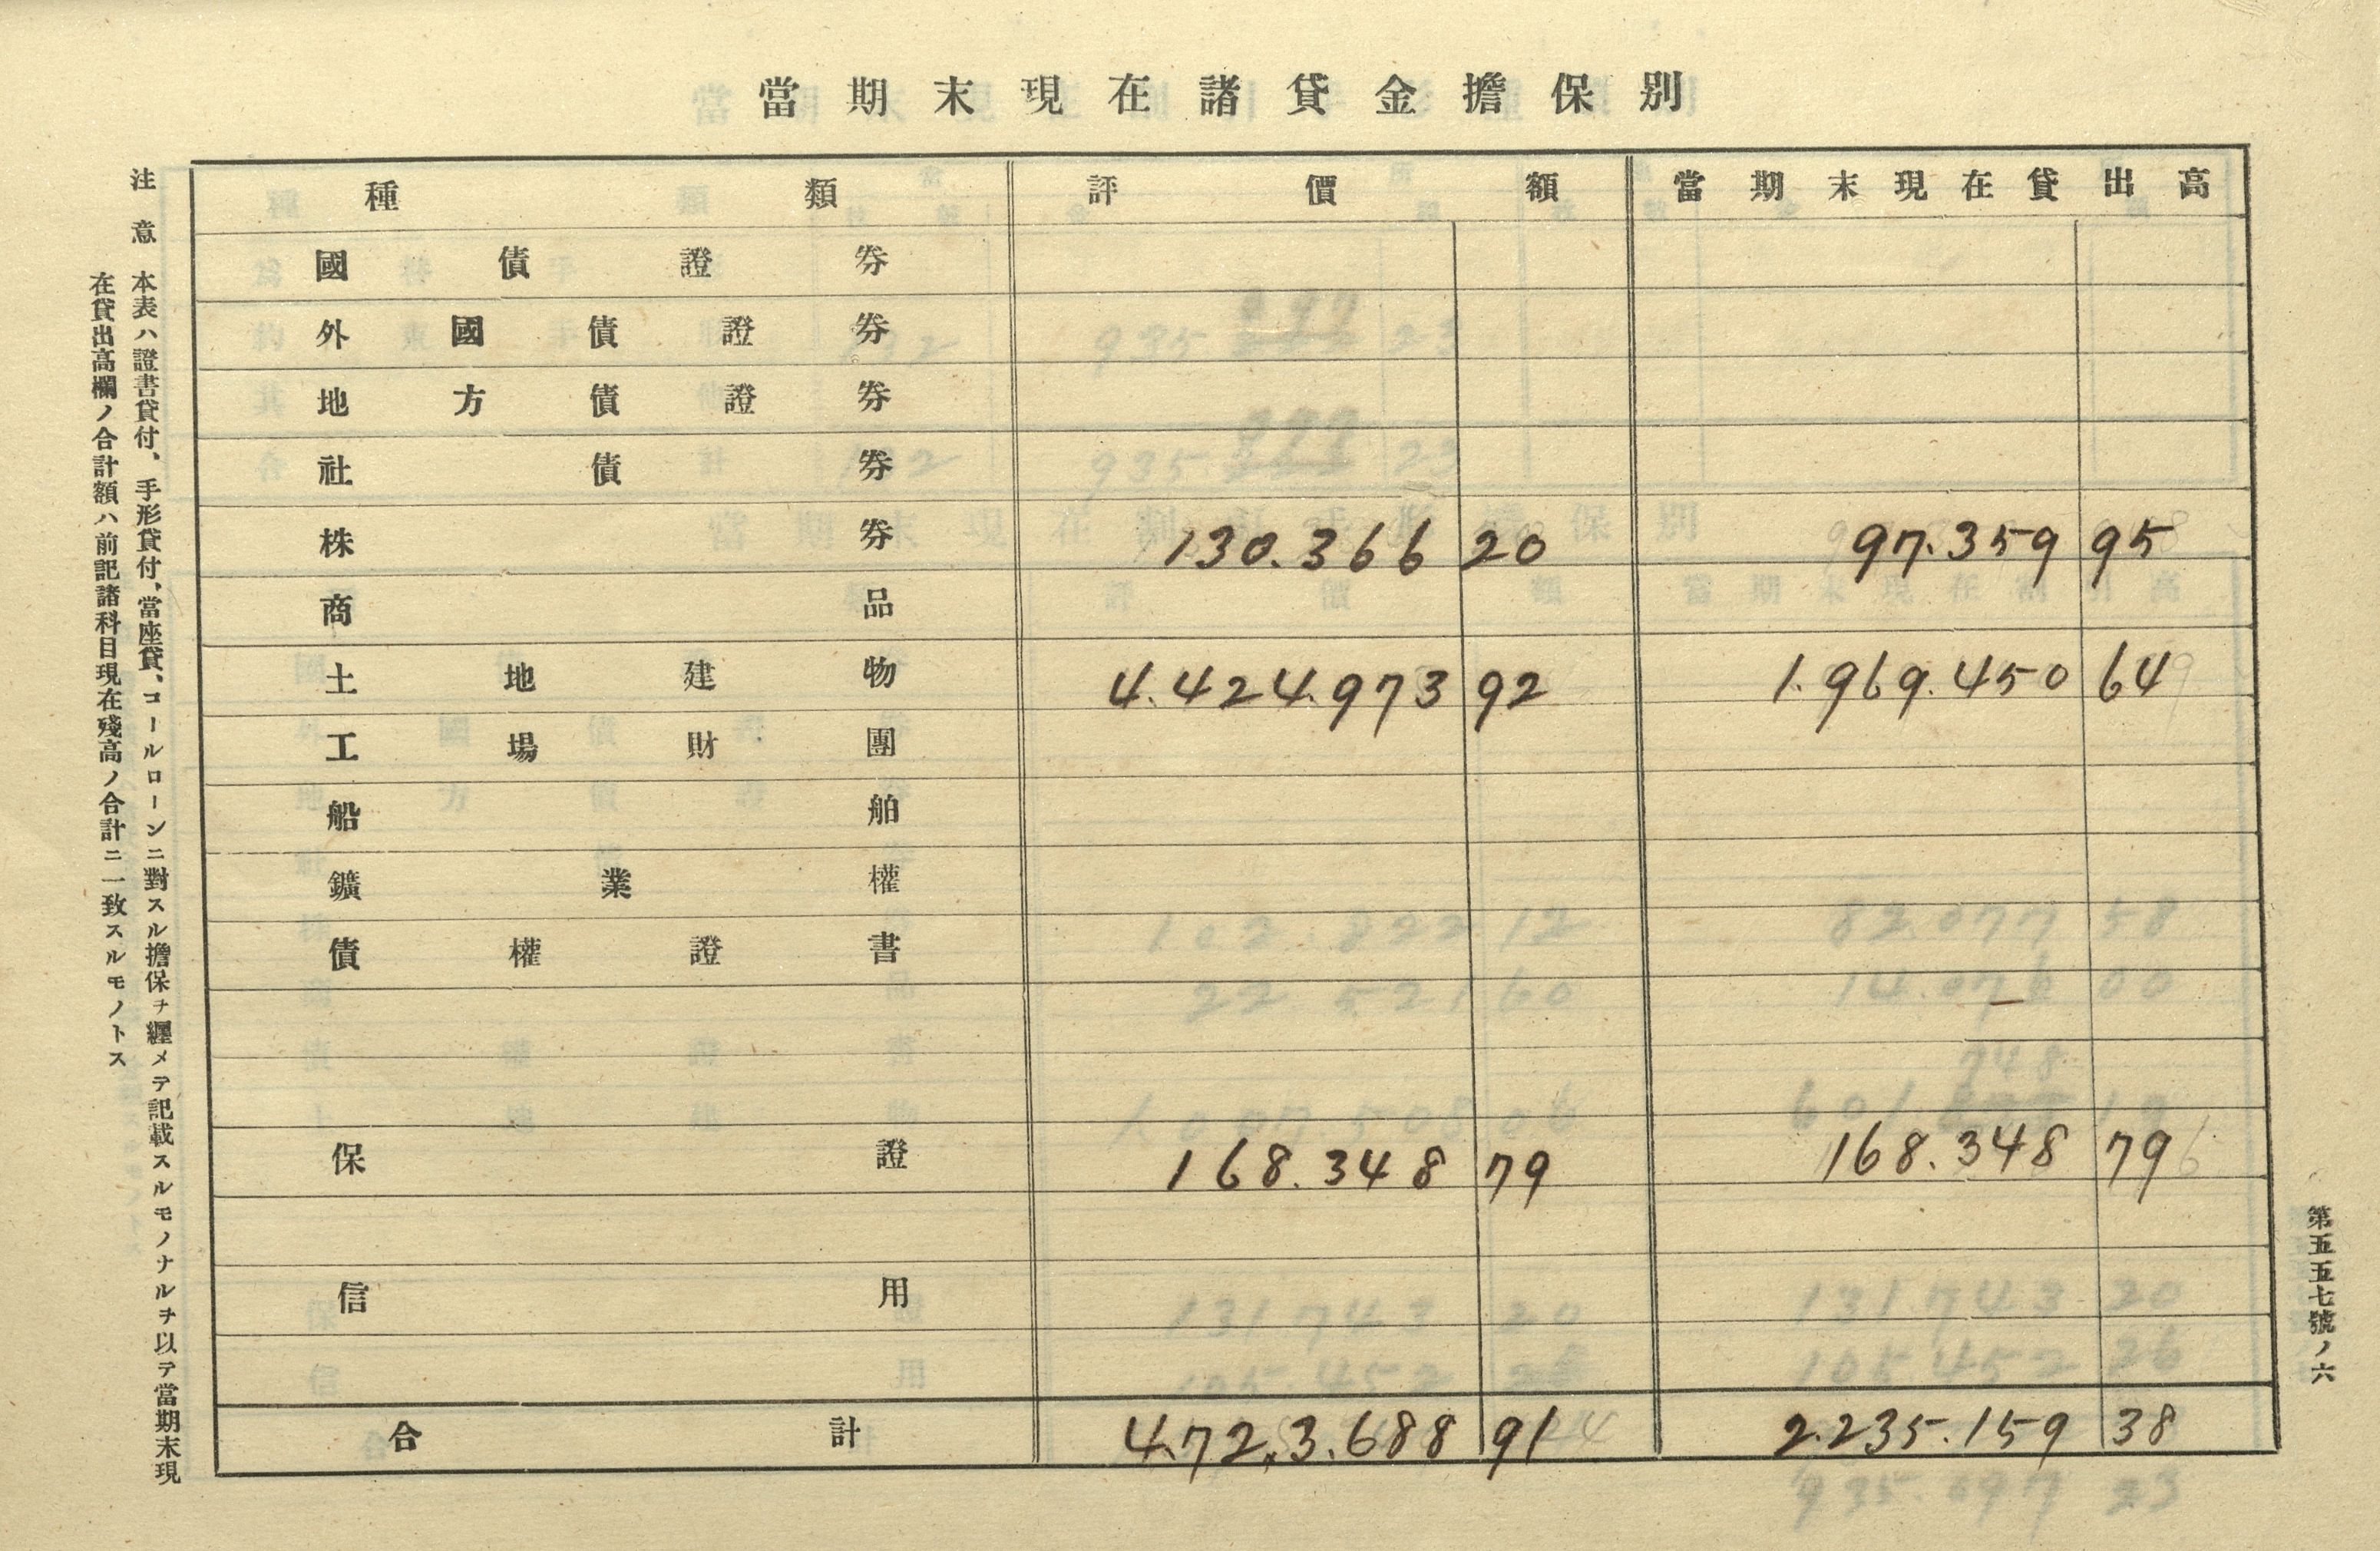 當期末現在諸貸金擔保別
種類 評價額 當期末現在貸出高
國債證券
外國債證券
地方債證券
社債券
株券 130.366 20 97.359 95
商品
土地建物 4.424.973 92 1.969.450 64
工場財團
船舶
鑛業權
債權證書
保證 168.348 79 168.348 79
信用
合計 4.723.688 91 2.235.159 38
注意 本表ハ證書貸付、手形貸付、當座貸、コールローンニ對スル擔保ヲ纒メテ記載スルモノナルヲ以テ當期末現
在貸出高欄ノ合計額ハ前記諸科目現在殘高ノ合計ニ一致スルモノトス
第五五七號ノ六